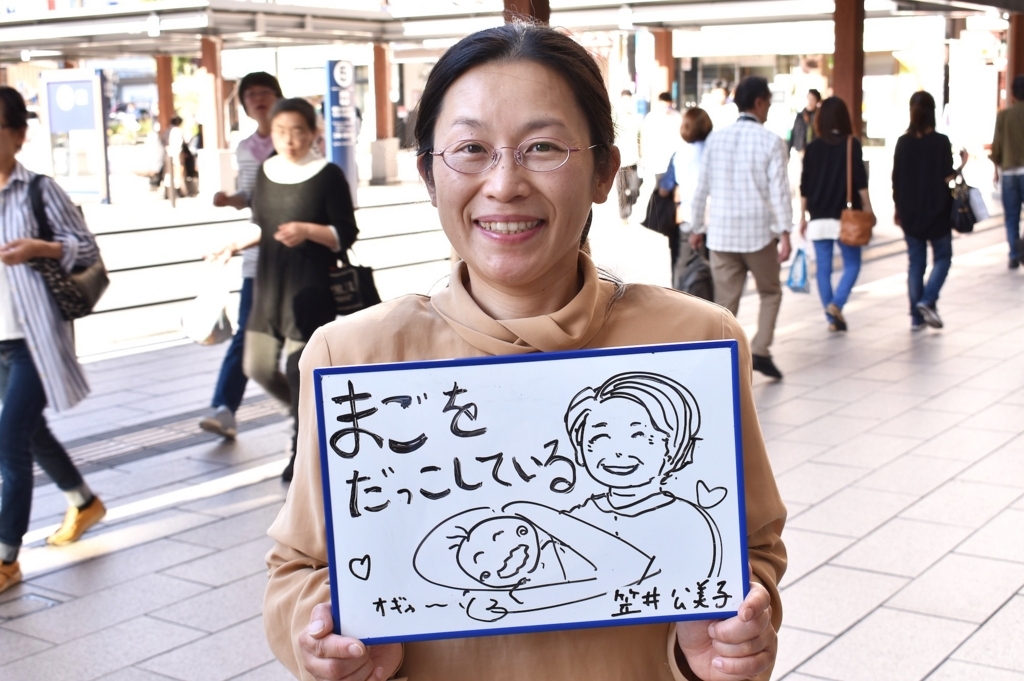 まごを
だっこしている
オギャ〜
笠井 公美子